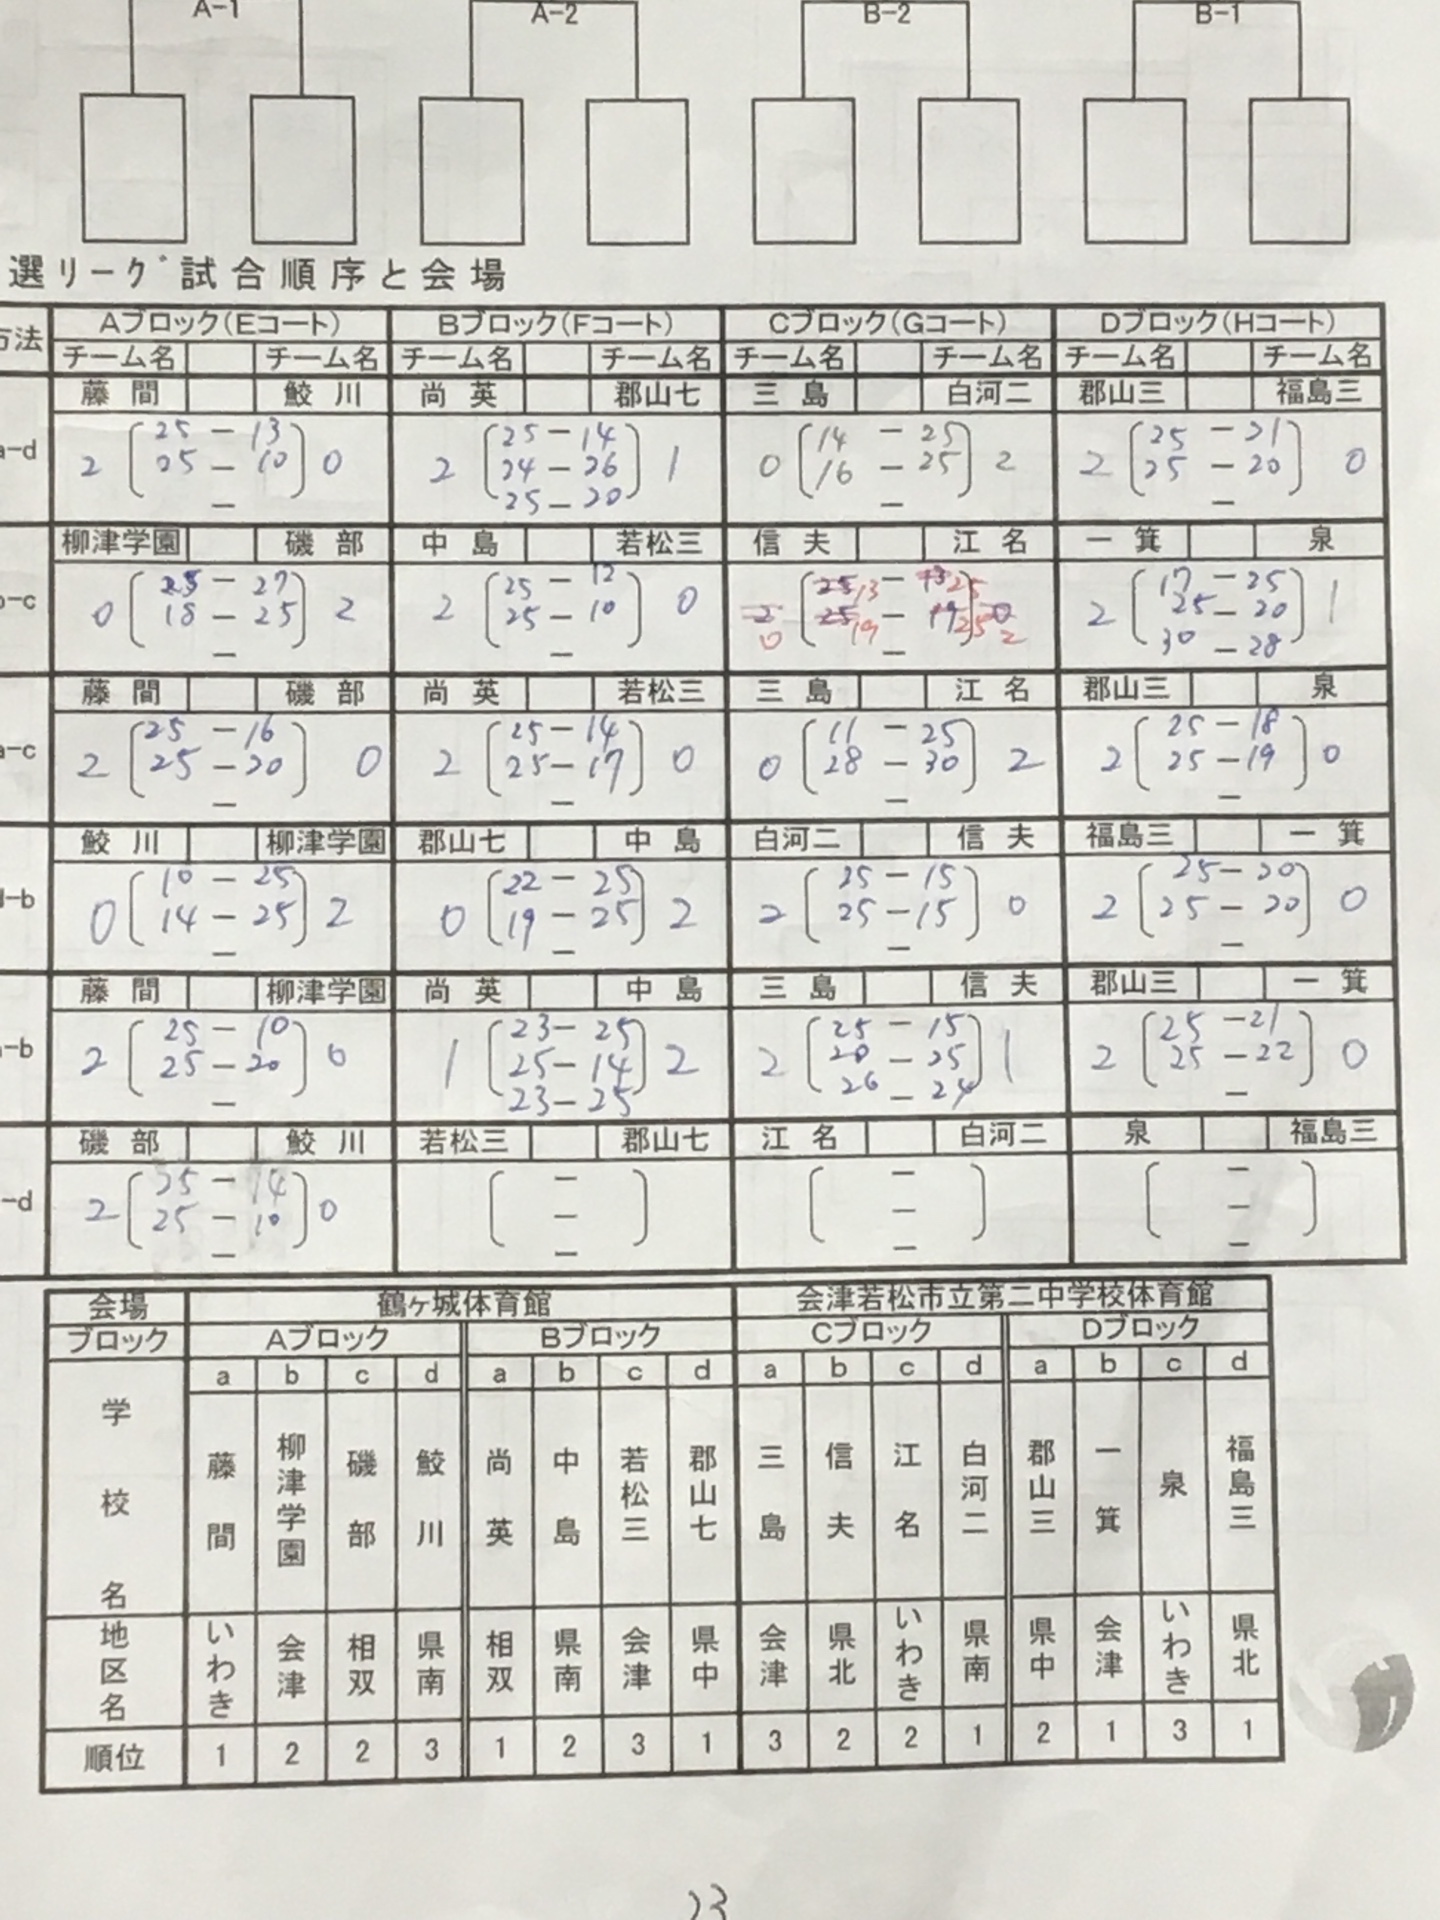 A-1 A-2 B-2 B-1
選リーグ試合順序と会場
方法 Aブロック(Eコート) Bブロック(Fコート) Cブロック(Gコート) Dブロック(Hコート)
チーム名 チーム名 チーム名 チーム名 チーム名 チーム名 チーム名 チーム名
藤間 鮫川 尚英 郡山七 三島 白河二 郡山三 福島三
25 - 13 25 - 14 14 - 25 25 - 21
a-d 2 25 - 10 0 2 24 - 26 1 0 16 - 25 2 2 25 - 20 0
- 25 - 20 - -
柳津学園 磯部 中島 若松三 信夫 江名 一箕 泉
25 - 27 25 - 12 25 13 - 13 25 17 - 25
b-c 0 18 - 25 2 2 25 - 10 0 2 0 25 19 - 19 25 0 2 2 25 - 20 1
- - - 30 - 28
藤間 磯部 尚英 若松三 三島 江名 郡山三 泉
25 - 16 25 - 14 11 - 25 25 - 18
a-c 2 25 - 20 0 2 25 - 17 0 0 28 - 30 2 2 25 - 19 0
- - - -
鮫川 柳津学園 郡山七 中島 白河二 信夫 福島三 一箕
10 - 25 22 - 25 25 - 15 25 - 20
d-b 0 14 - 25 2 0 19 - 25 2 2 25 - 15 0 2 25 - 20 0
- - - -
藤間 柳津学園 尚英 中島 三島 信夫 郡山三 一箕
25 - 10 23 - 25 25 - 15 25 - 21
a-b 2 25 - 20 0 1 25 - 14 2 2 20 - 25 1 2 25 - 22 0
- 23 - 25 26 - 24 -
磯部 鮫川 若松三 郡山七 江名 白河二 泉 福島三
25 - 14 - - -
-d 2 25 - 10 0 - - -
- - - -
会場 鶴ヶ城体育館 会津若松市立第二中学校体育館
ブロック Aブロック Bブロック Cブロック Dブロック
学校名 a b c d a b c d a b c d a b c d
藤間 柳津学園 磯部 鮫川 尚英 中島 若松三 郡山七 三島 信夫 江名 白河二 郡山三 一箕 泉 福島三
地区名 いわき 会津 相双 県南 相双 県南 会津 県中 会津 県北 いわき 県南 県中 会津 いわき 県北
順位 1 2 2 3 1 2 3 1 3 2 2 1 2 1 3 1
23